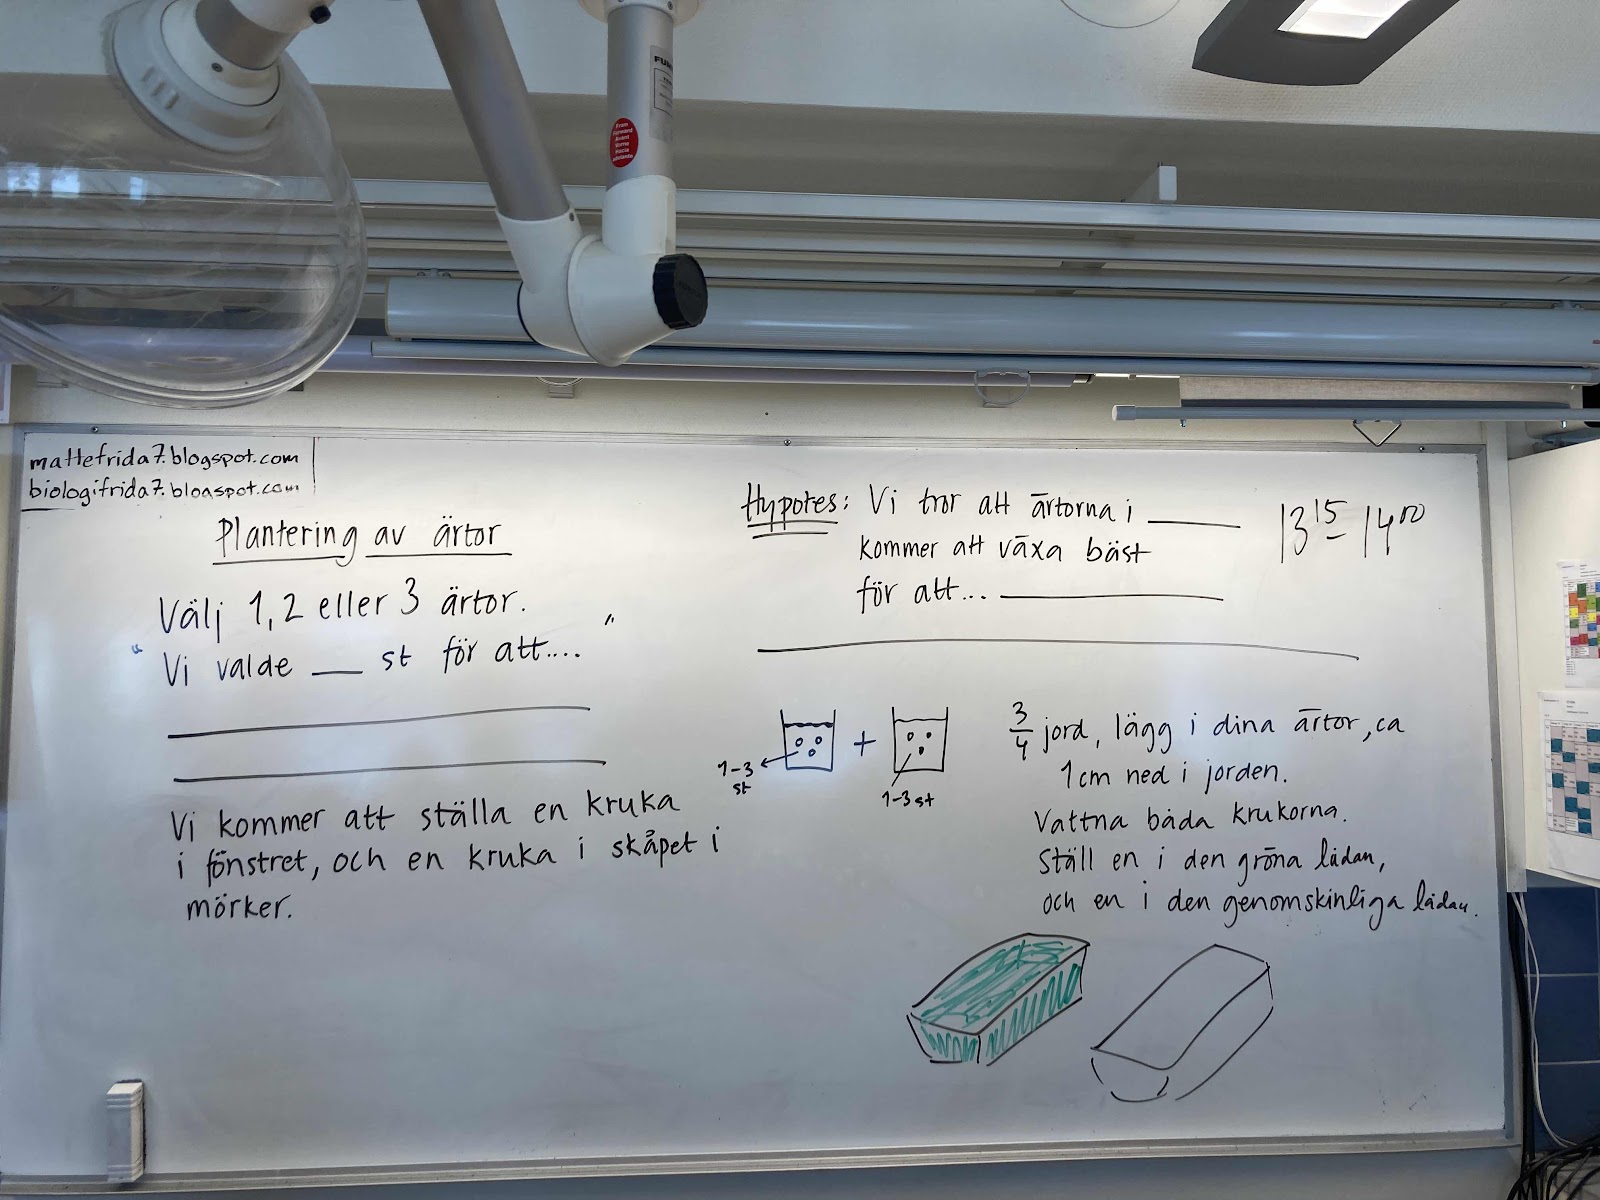 mattefrida7.blogspot.com
biologifrida7.blogspot.com
Plantering av ärtor
Välj 1, 2 eller 3 ärtor.
"Vi valde ___ st för att...."
Vi kommer att ställa en kruka
i fönstret, och en kruka i skåpet i
mörker.
Hypotes: Vi tror att ärtorna i ______
kommer att växa bäst
för att... ______
13 15 – 14 00
1-3
st
+
1-3 st
3/4 jord, lägg i dina ärtor, ca
1 cm ned i jorden.
Vattna båda krukorna.
Ställ en i den gröna lådan,
och en i den genomskinliga lådan.
From
Forward
Avant
Vorne
Hacia
adelante